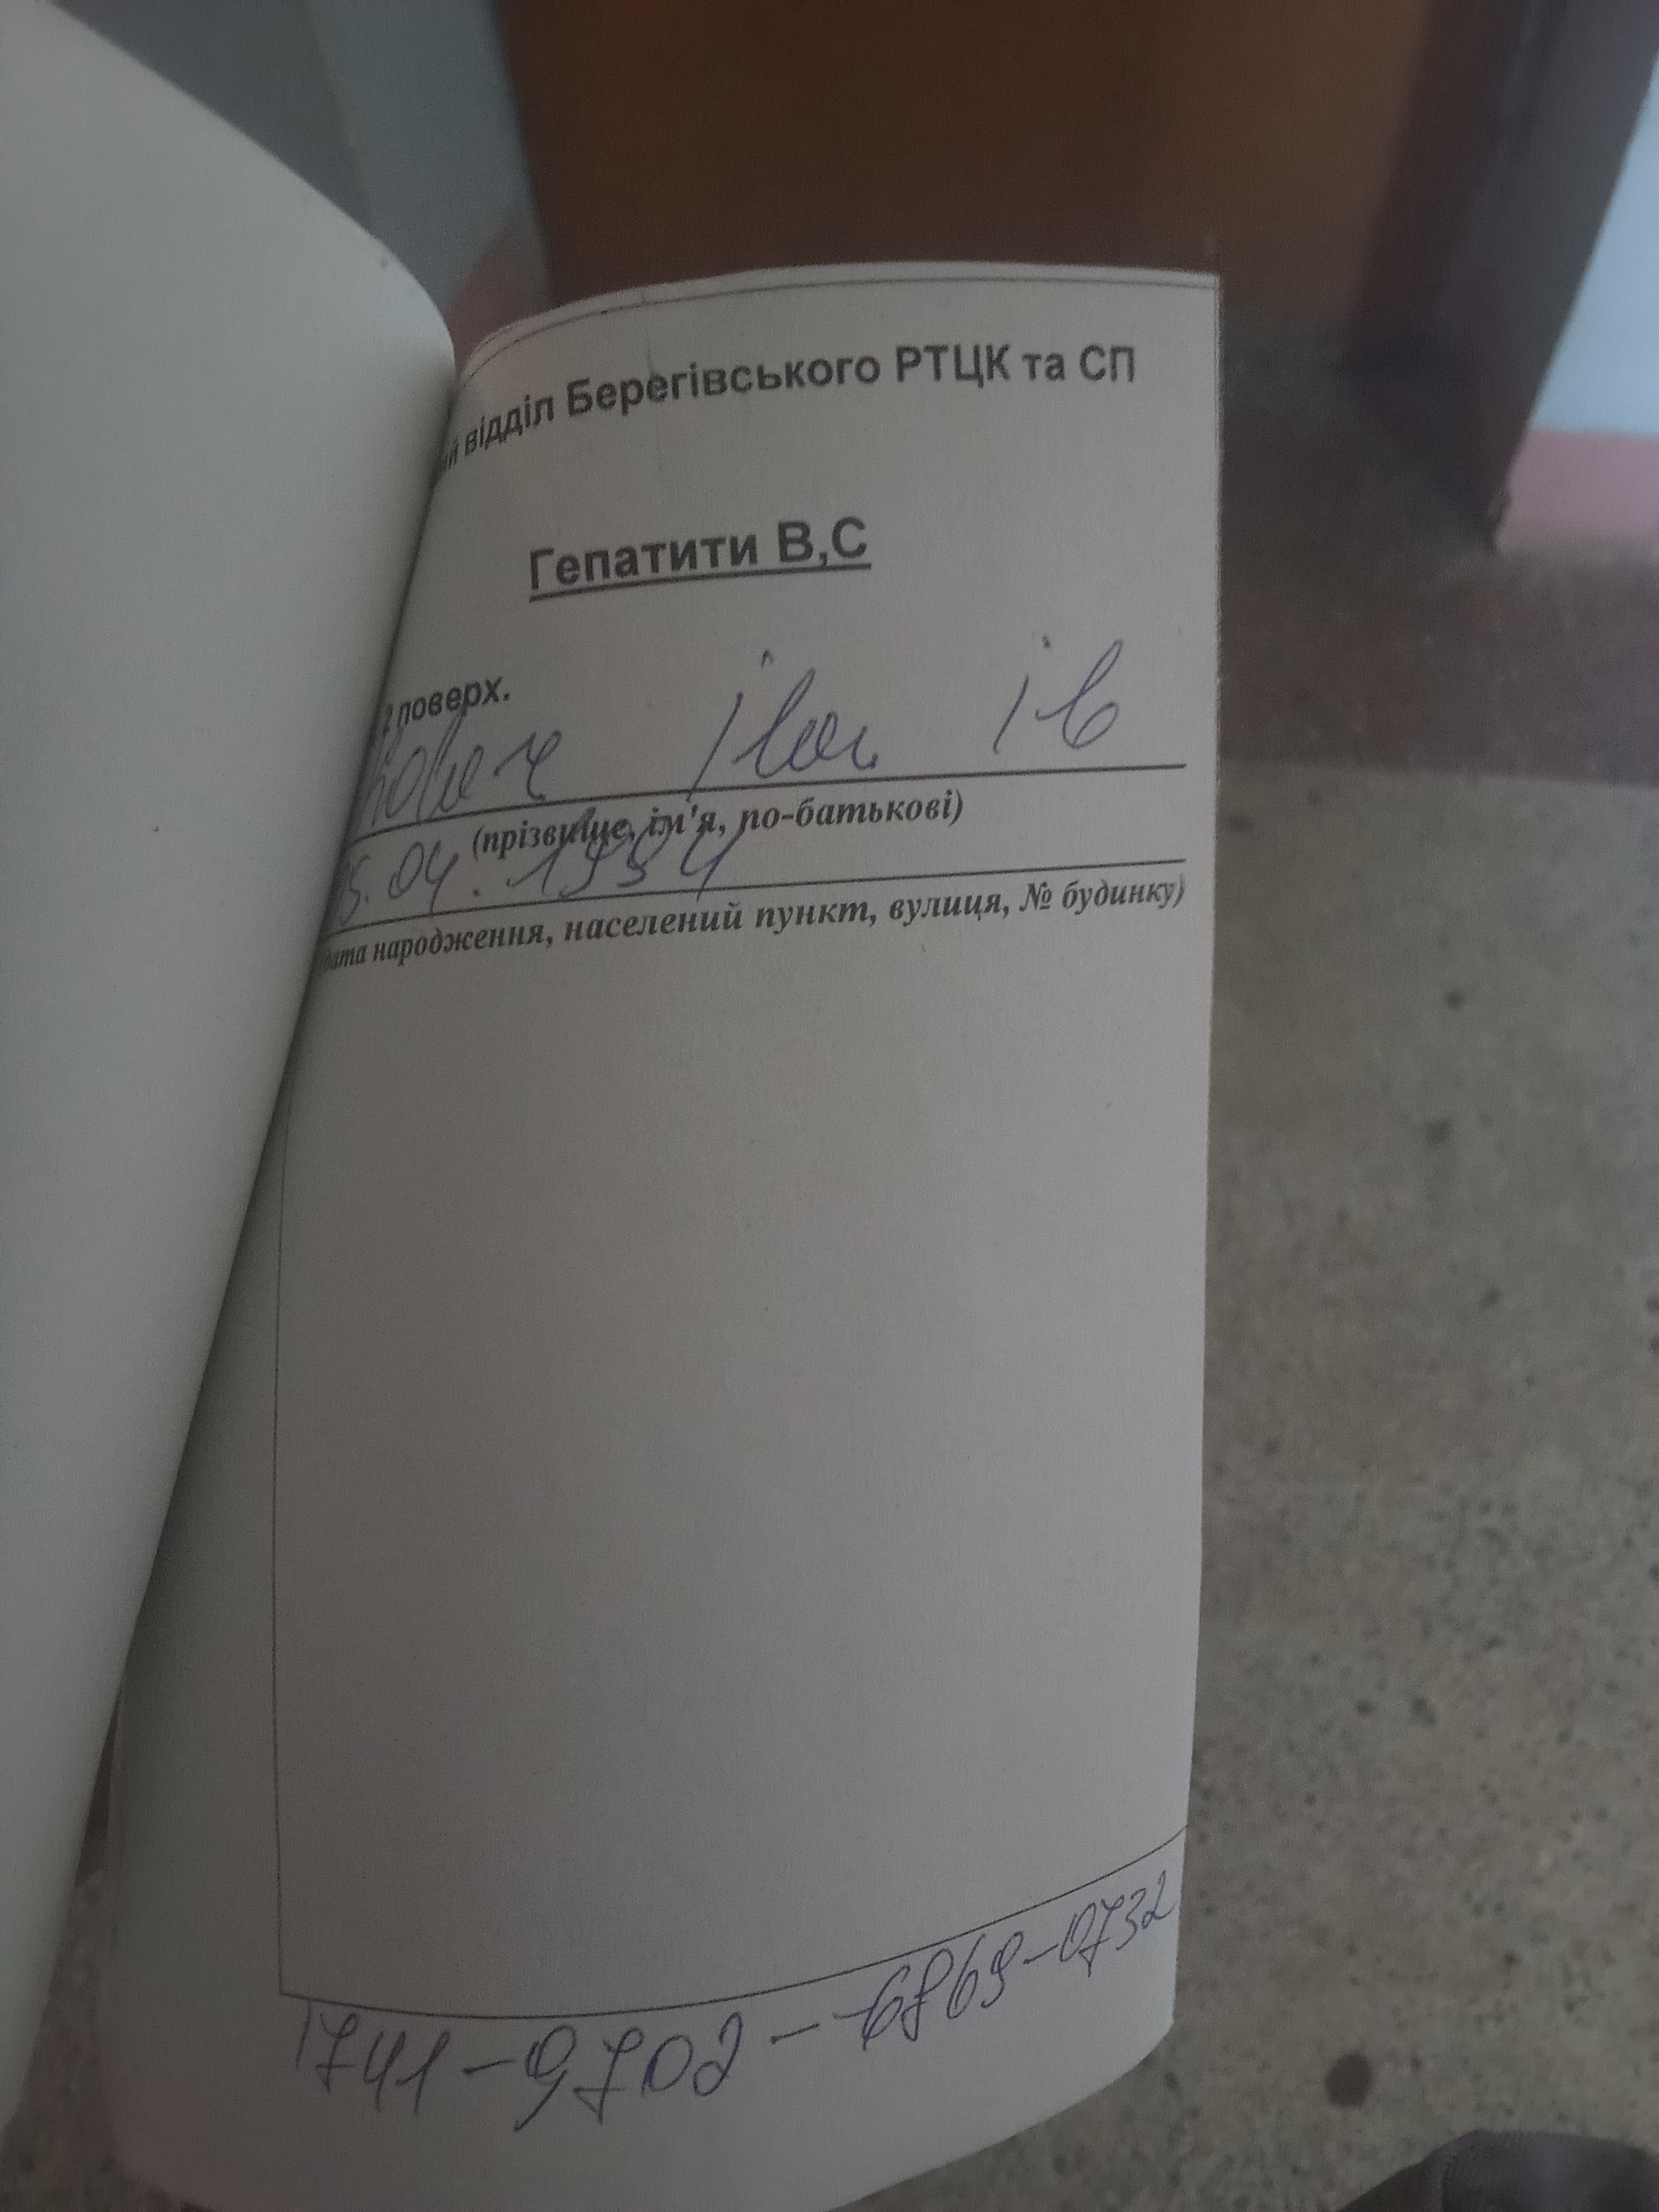 відділ Берегівського РТЦК та СП
Гепатити В,С
2 поверх.
Ковач Іван Ів
(прізвище, ім'я, по-батькові)
5.04.1994
дата народження, населений пункт, вулиця, № будинку)
1741-9702-6869-0732